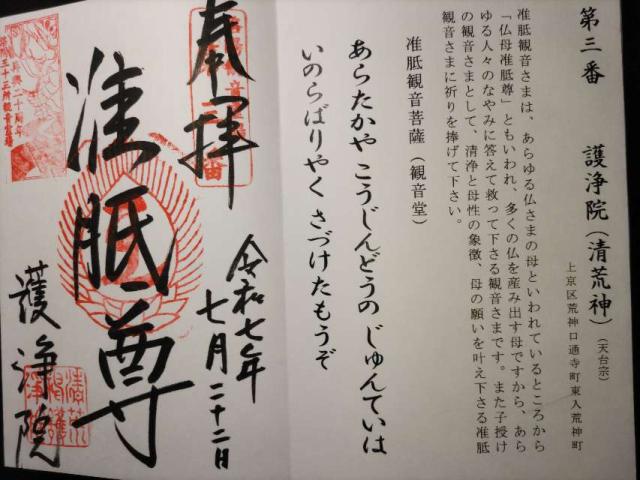 第三番 護浄院(清荒神)(天台宗)
上京区荒神口通寺町東入荒神町
准胝観音さまは、あらゆる仏さまの母といわれているところから
「仏母准胝尊」ともいわれ、多くの仏を産み出す母ですから、あら
ゆる人々のなやみに答えて救って下さる観音さまです。また子授け
の観音さまとして、清浄と母性の象徴、母の願いを叶え下さる准胝
観音さまに祈りを捧げて下さい。
准胝観音菩薩(観音堂)
あらたかや こうじんどうの じゅんていは
いのらばりやく さづけたもうぞ
奉拝
令和七年
七月二十二日
准胝尊
護浄院
再興二十周年
三十三所観音霊場